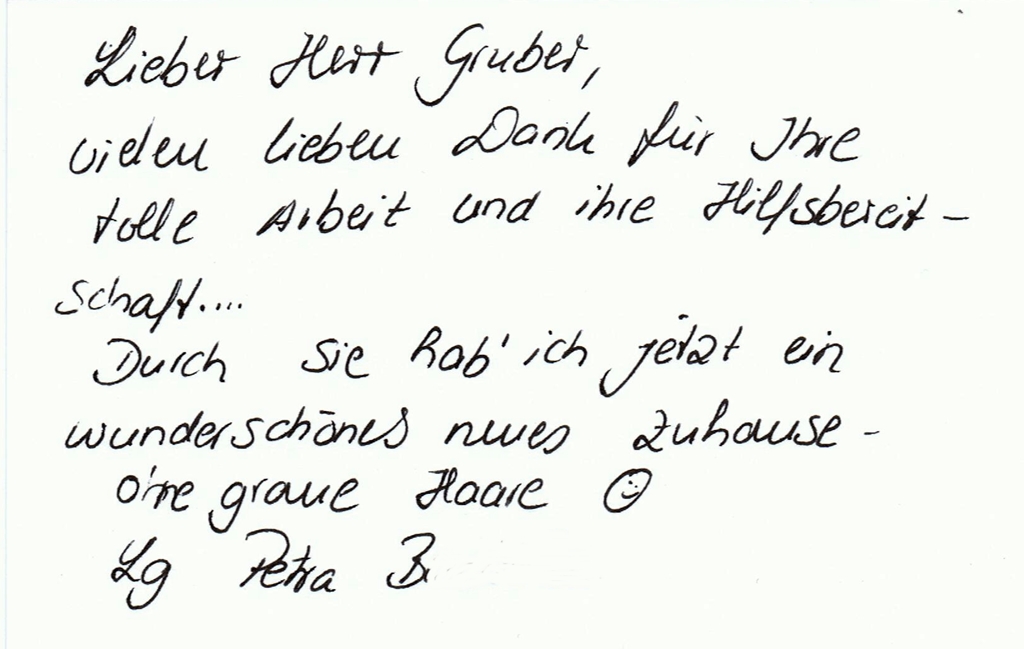 Lieber Herr Gruber,
vielen lieben Dank für Ihre
tolle Arbeit und ihre Hilfsbereit-
schaft....
Durch Sie hab' ich jetzt ein
wunderschönes neues Zuhause -
o'ne graue Haare ☺
Lg Petra B.